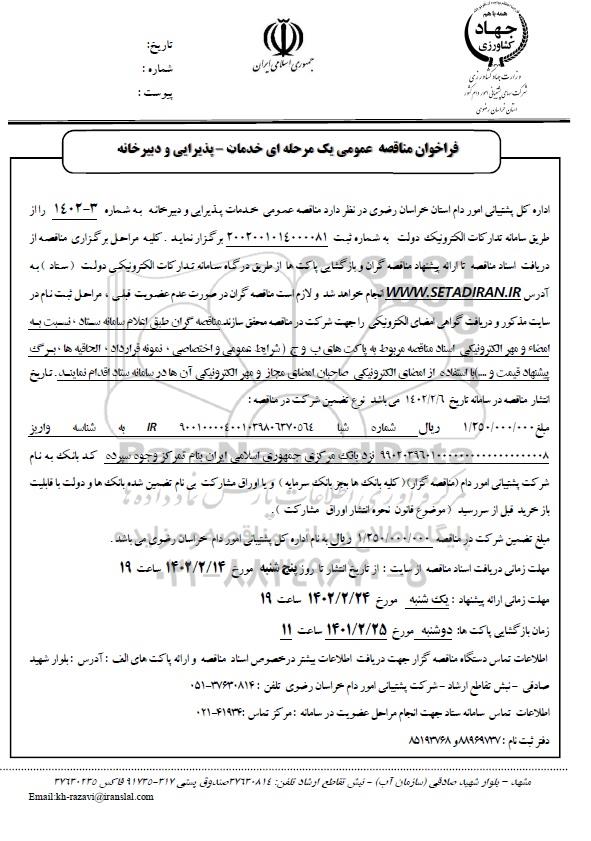 همه با هم
جهاد
کشاورزی
وزارت جهاد کشاورزی
شرکت سهامی پشتیبانی امور دام کشور
استان خراسان رضوی
جمهوری اسلامی ایران
تاریخ:
شماره :
پیوست :
فراخوان مناقصه عمومی یک مرحله ای خدمات – پذیرایی و دبیرخانه
اداره کل پشتیبانی امور دام استان خراسان رضوی در نظر دارد مناقصه عمومی خدمات پذیرایی و دبیرخانه به شماره ۳-۱۴۰۲ را از
طریق سامانه تدارکات الکترونیک دولت به شماره ثبت ۲۰۰۲۰۰۱۰۱۴۰۰۰۰۸۱ برگزار نماید . کلیه مراحل برگزاری مناقصه از
دریافت اسناد مناقصه تا ارائه پیشنهاد مناقصه گران و بازگشایی پاکت ها از طریق درگاه سامانه تدارکات الکترونیکی دولت ( ستاد ) به
آدرس WWW.SETADIRAN.IR انجام خواهد شد و لازم است مناقصه گران در صورت عدم عضویت قبلی ، مراحل ثبت نام در
سایت مذکور و دریافت گواهی امضای الکترونیکی را جهت شرکت در مناقصه محقق سازند.مناقصه گران طبق اعلام سامانه ستاد ، نسبت به
امضاء و مهر الکترونیکی اسناد مناقصه مربوط به پاکت های ب و ج ( شرایط عمومی و اختصاصی ، نمونه قرارداد ، الحاقیه ها ،برگ
پیشنهاد قیمت و ....)با استفاده از امضای الکترونیکی صاحبان امضای مجاز و مهر الکترونیکی آن ها در سامانه ستاد اقدام نمایند. تاریخ
انتشار مناقصه در سامانه تاریخ ۱۴۰۲/۲/۶ می باشد نوع تضمین شرکت در مناقصه :
مبلغ ۱/۲۵۰/۰۰۰/۰۰۰ ریال شماره شبا IR ۹۰۰۱۰۰۰۰۴۰۰۱۰۳۹۸۰۶۳۷۰۵۶۴ به شناسه واریز
نزد بانک مرکزی جمهوری اسلامی ایران بنام تمرکز وجوه سپرده کد بانک به نام
شرکت پشتیبانی امور دام (مناقصه گزار)( کلیه بانک ها بجز بانک سرمایه ) و یا اوراق مشارکت بی نام تضمین شده بانک ها و دولت با قابلیت
باز خرید قبل از سررسید ( موضوع قانون نحوه انتشار اوراق مشارکت ) .
مبلغ تضمین شرکت در مناقصه ۱/۲۵۰/۰۰۰/۰۰۰ ریال به نام اداره کل پشتیبانی امور دام خراسان رضوی می باشد .
مهلت زمانی دریافت اسناد مناقصه از سایت : از تاریخ انتشار تا روز پنج شنبه مورخ ۱۴۰۲/۲/۱۴ ساعت ۱۹
مهلت زمانی ارائه پیشنهاد : یک شنبه مورخ ۱۴۰۲/۲/۲۴ ساعت ۱۹
زمان بازگشایی پاکت ها: دوشنبه مورخ ۱۴۰۱/۲/۲۵ ساعت ۱۱
اطلاعات تماس دستگاه مناقصه گزار جهت دریافت اطلاعات بیشتر درخصوص اسناد مناقصه و ارائه پاکت های الف : آدرس : بلوار شهید
صادقی – نبش تقاطع ارشاد – شرکت پشتیبانی امور دام خراسان رضوی تلفن : ۳۷۶۳۰۸۱۴-۰۵۱
اطلاعات تماس سامانه ستاد جهت انجام مراحل عضویت در سامانه : مرکز تماس : ۴۱۹۳۴-۰۲۱
دفتر ثبت نام : ۸۸۹۶۹۷۳۷و ۸۵۱۹۳۷۶۸
مشهد – بلوار شهید صادقی (سازمان آب) – نبش تقاطع ارشاد تلفن: ۳۷۶۳۰۸۱۴صندوق پستی ۳۱۷-۹۱۷۳۵ فاکس ۳۷۶۳۰۲۳۵
Email:kh-razavi@iranslal.com
پایگاه اطلاع رسانی مناقصه و مزایده
۰۲۱-۸۸۳۴۹۶۷۰-۵